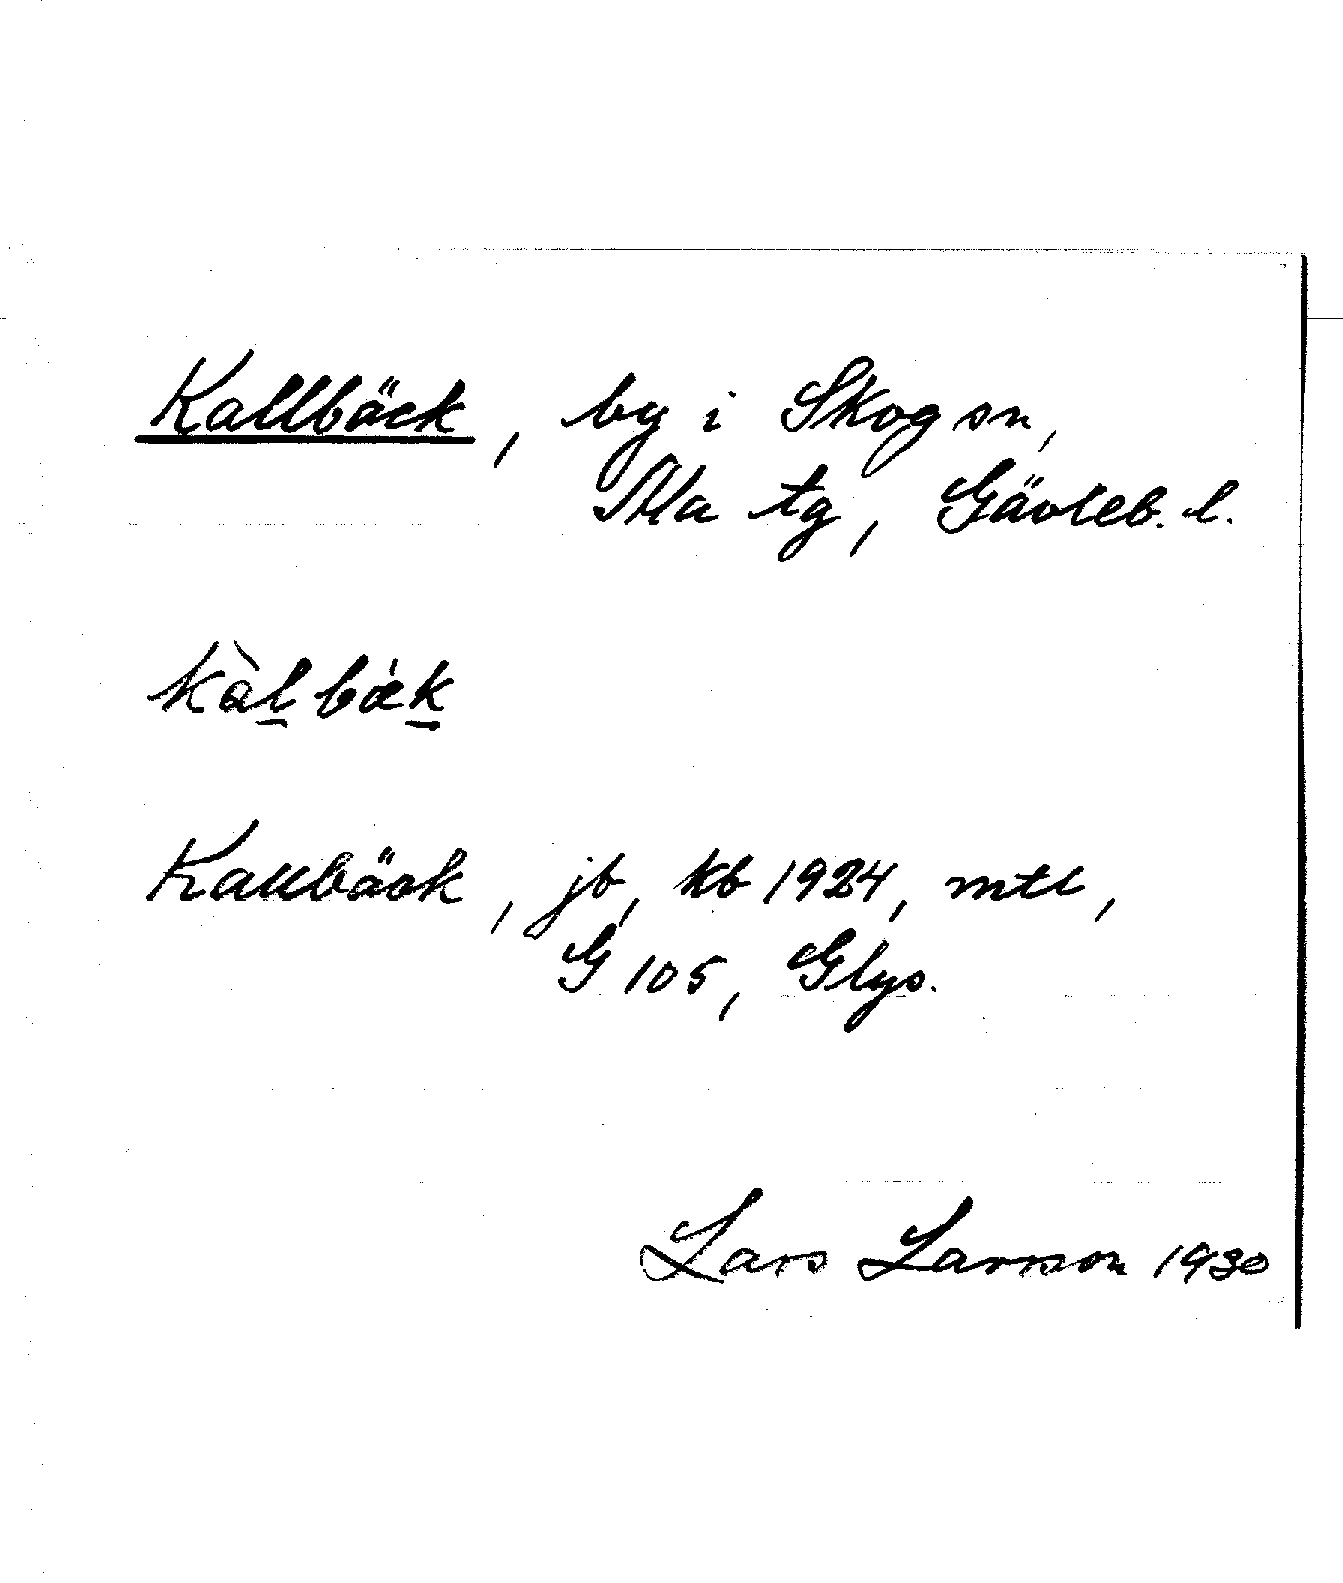 Kallbäck, by i Skog sn,
Ala tg, Gävleb. l.
kàl̲bæ̀k̲
Kallbäck, jb, kb 1924, mtl,
G 105, Glys.
Lars Larsson 1930